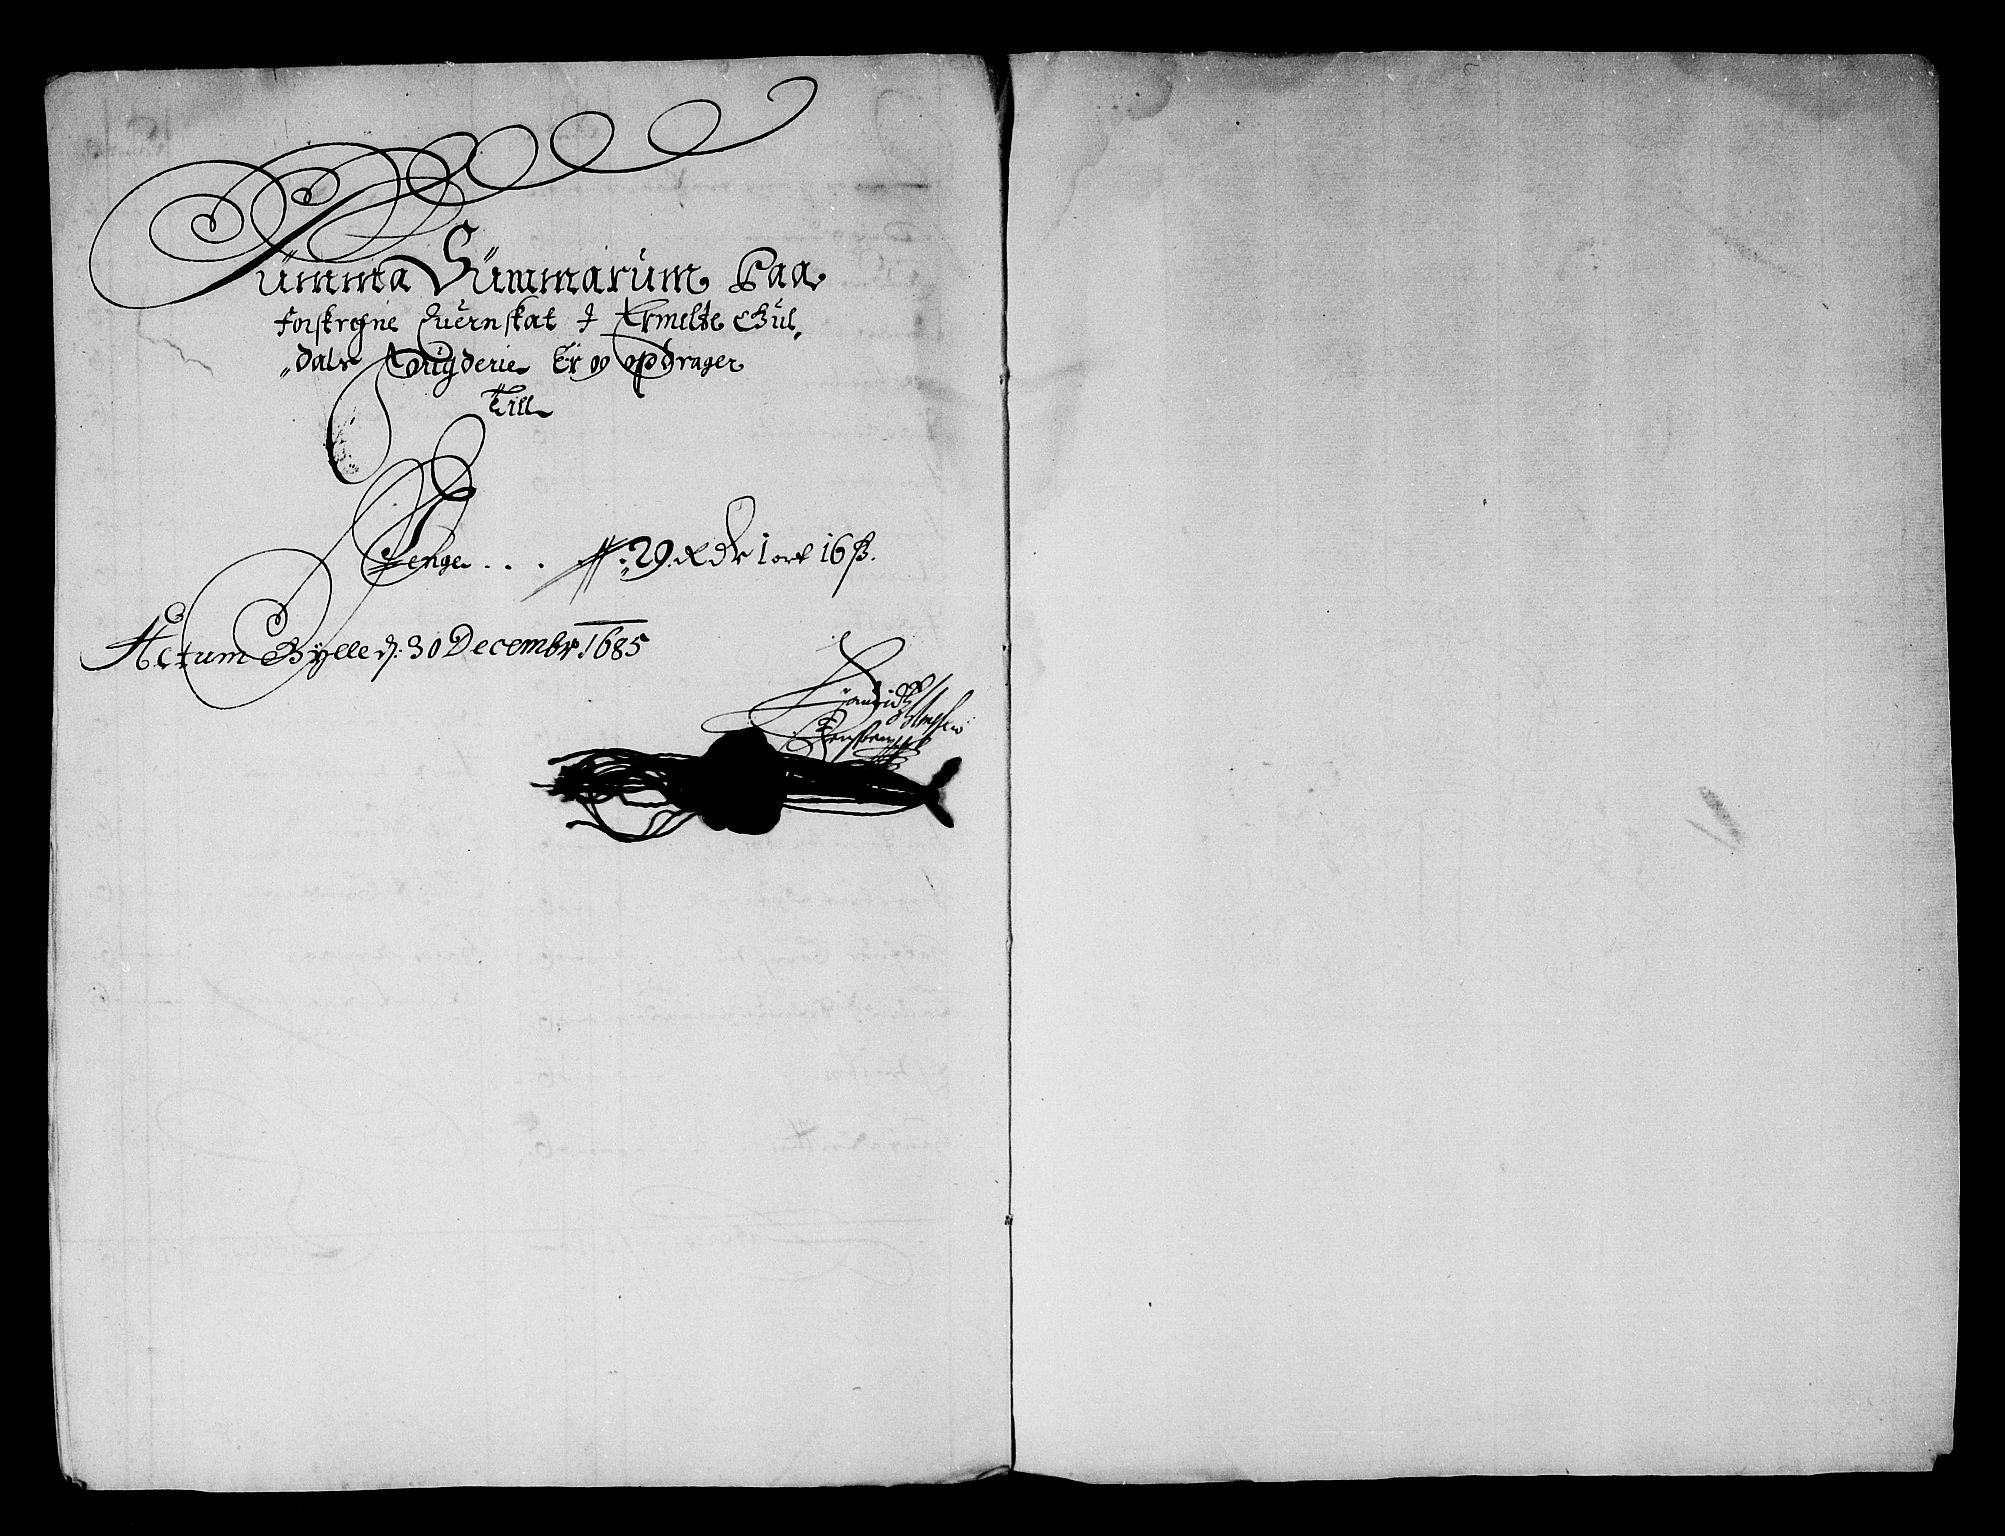 Summa Summarum Paa
forskrefne Quernskat I Ermelte Gul„
„dals fougderie Er og opdrager
Till
Penge . . . 29 Rdr 1 ort 16 ß.
Actum Bÿlle d: 30 Decembr 1685